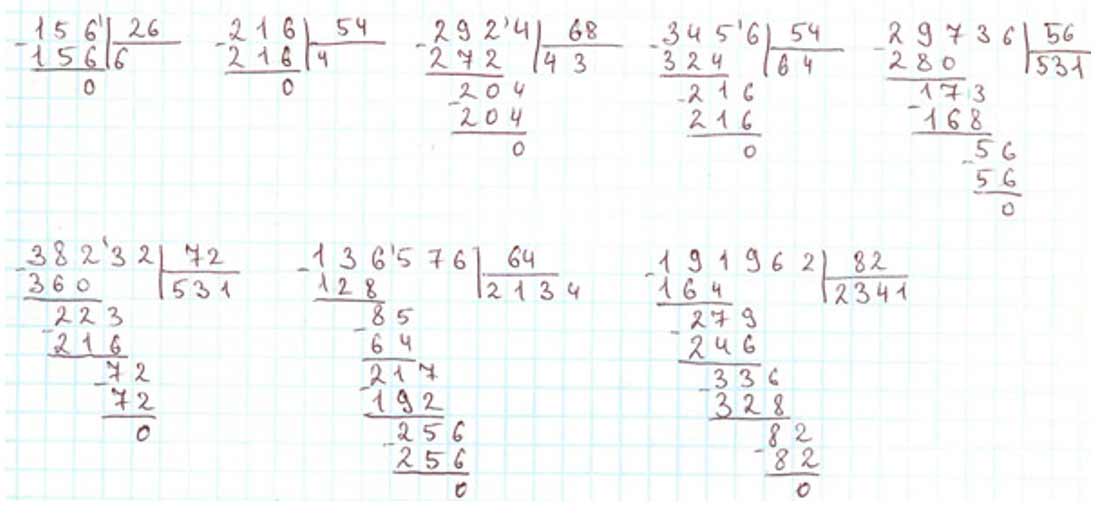 156' 26
-156 6
0
-216 54
216 4
0
-292'4 68
272 43
-204
204
0
-345'6 54
324 64
-216
216
0
-29736 56
280 531
-173
168
-56
56
0
-382'32 72
360 531
-223
216
-72
72
0
-136'576 64
128 2134
-85
64
-217
192
-256
256
0
-191962 82
164 2341
-279
246
-336
328
-82
82
0